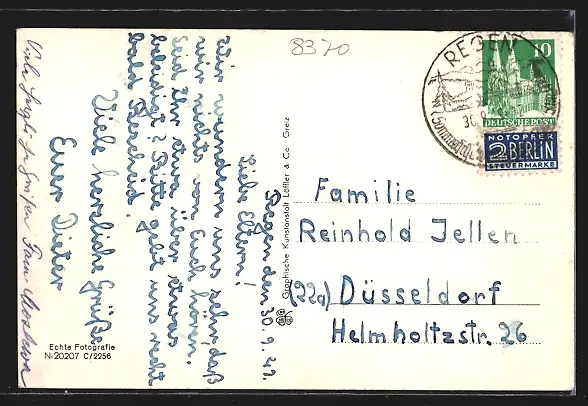 8370
REGEN
30.9.
Sommerfri
10
DEUTSCHE POST
NOTOPFER
2 BERLIN
STEUERMARKE
Regen den 30.9.49.
Liebe Eltern!
Wir wundern uns sehr, daß
wir nichts von Euch hören.
Seid Ihr etwa über etwas
beleidigt? Bitte gebt uns recht
bald Bescheid.
Viele herzliche Grüße
Euer Dieter
Viele
Graphische Kunstanstalt Löffler & Co Greiz
Familie
Reinhold Jellen
(22a) Düsseldorf
Helmholtzstr. 26
Echte Fotografie
№ 20207 C/2256